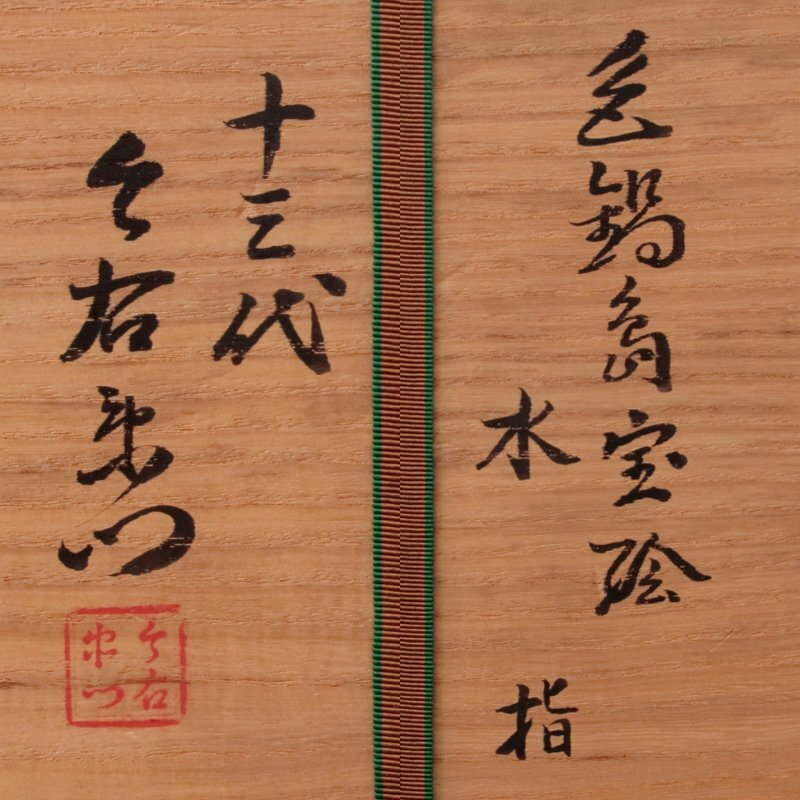 色鍋島宝絵
水指
十三代
今右衛門
今右
衛門